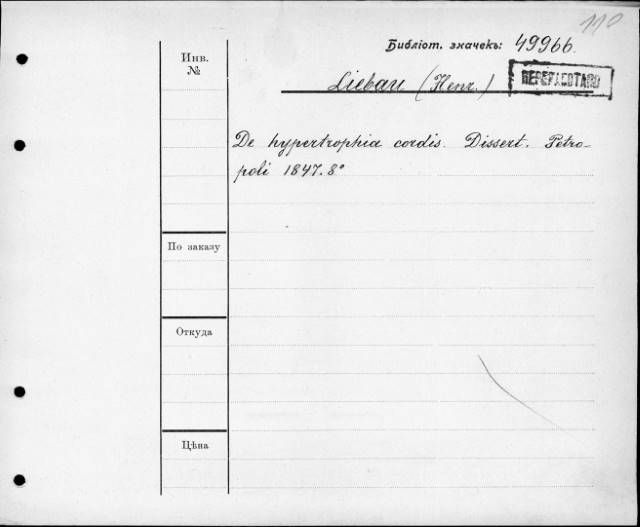 110
Библіот. значекъ: 49966.
Инв.
№
Liebau (Henr.)
De hypertrophia cordis. Dissert. Petro-
poli 1847. 8°
По заказу
Откуда
Цѣна